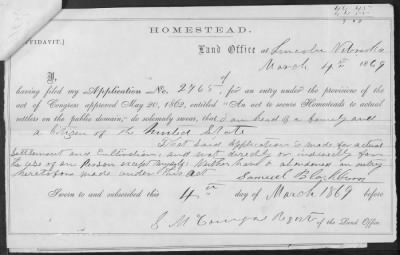 HOMESTEAD.
AFFIDAVIT.]
Land Office at Lincoln Nebraska
March 4th 1869
I, of
having filed my Application No. 2765, for an entry under the provisions of the
act of Congress approved May 20, 1862, entitled "An act to secure Homesteads to actual
settlers on the public domain," do solemnly swear, that I am head of a family and
a Citizen of the United State
That said Application is made for actual
Settlement and Cultivation, and not directly or indirectly for
the use of any Person or
made under this act Samuel Blackburn
Sworn to and subscribed this 4th day of March 1869 before
Register of the Land Office.